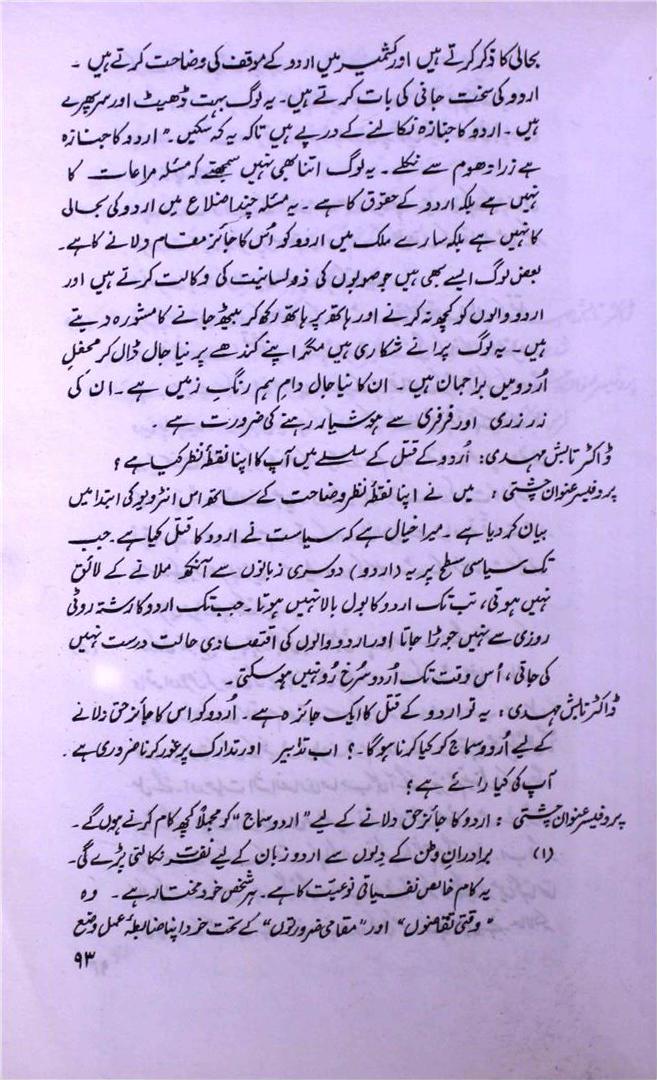 بحالی کا ذکر کرتے ہیں اور کشمیر میں اردو کے موقف کی وضاحت کرتے ہیں ۔
اردو کی سخت جانی کی بات کرتے ہیں۔ یہ لوگ بہت ڈھیٹ اور سرپھرے
ہیں ۔ اردو کا جنازہ نکالنے کے درپے ہیں تاکہ یہ کہہ سکیں۔ " اردو کا جنازہ
ہے ذرا دھوم سے نکلے ۔ یہ لوگ اتنا بھی نہیں سمجھتے کہ مسئلہ مراعات کا
نہیں ہے بلکہ اردو کے حقوق کا ہے ۔ یہ مسئلہ چند اضلاع میں اردو کی بحالی
کا نہیں ہے بلکہ سارے ملک میں اردو کو اُس کا جائز مقام دلانے کا ہے۔
بعض لوگ ایسے بھی ہیں جو صوبوں کی ذولسانیت کی وکالت کرتے ہیں اور
اردو والوں کو کچھ نہ کرنے اور ہاتھ پر ہاتھ رکھ کر بیٹھ جانے کا مشورہ دیتے
ہیں ۔ یہ لوگ پرانے شکاری ہیں مگر اپنے کندھے پر نیا جال ڈال کر محفلِ
اُردو میں براجمان ہیں ۔ ان کا نیا جال دامِ ہم رنگِ زمیں ہے ۔ ان کی
زرزری اور فرفری سے ہوشیار رہنے کی ضرورت ہے ۔
ڈاکٹر تابش مہدی: اُردو کے قتل کے سلسلے میں آپ کا اپنا نقطۂ نظر کیا ہے ؟
پروفیسر عنوان چشتی : میں نے اپنا نقطۂ نظر وضاحت کے ساتھ اس انٹرویو کی ابتدا میں
بیان کر دیا ہے ۔ میرا خیال ہے کہ سیاست نے اردو کا قتل کیا ہے ۔ جب
تک سیاسی سطح پر یہ (اردو) دوسری زبانوں سے آنکھ ملانے کے لائق
نہیں ہوتی ، تب تک اردو کا بول بالا نہیں ہوتا ۔ جب تک اردو کا رشتہ روٹی
روزی سے نہیں جوڑا جاتا اور اردو والوں کی اقتصادی حالت درست نہیں
کی جاتی ، اُس وقت تک اُردو سُرخ رُو نہیں ہو سکتی ۔
ڈاکٹر تابش مہدی : یہ تو اردو کے قتل کا ایک جائزہ ہے ۔ اُردو کو اس کا جائز حق دلانے
کے لیے اُردو سماج کو کیا کرنا ہوگا ۔ ؟ اب تدابیر اور تدارک پر غور کرنا ضروری ہے ۔
آپ کی کیا رائے ہے ؟
پروفیسر عنوان چشتی : اردو کا جائز حق دلانے کے لیے " اردو سماج " کو مجملاً کچھ کام کرنے ہوں گے ۔
(۱) برادرانِ وطن کے دلوں سے اردو زبان کے لیے نفرت نکالنی پڑے گی ۔
یہ کام خالص نفسیاتی نوعیت کا ہے ۔ ہر شخص خود مختار ہے ۔ وہ
" وقتی تقاضوں " اور " مقامی ضرورتوں " کے تحت خود اپنا ضابطۂ عمل وضع
۹۳